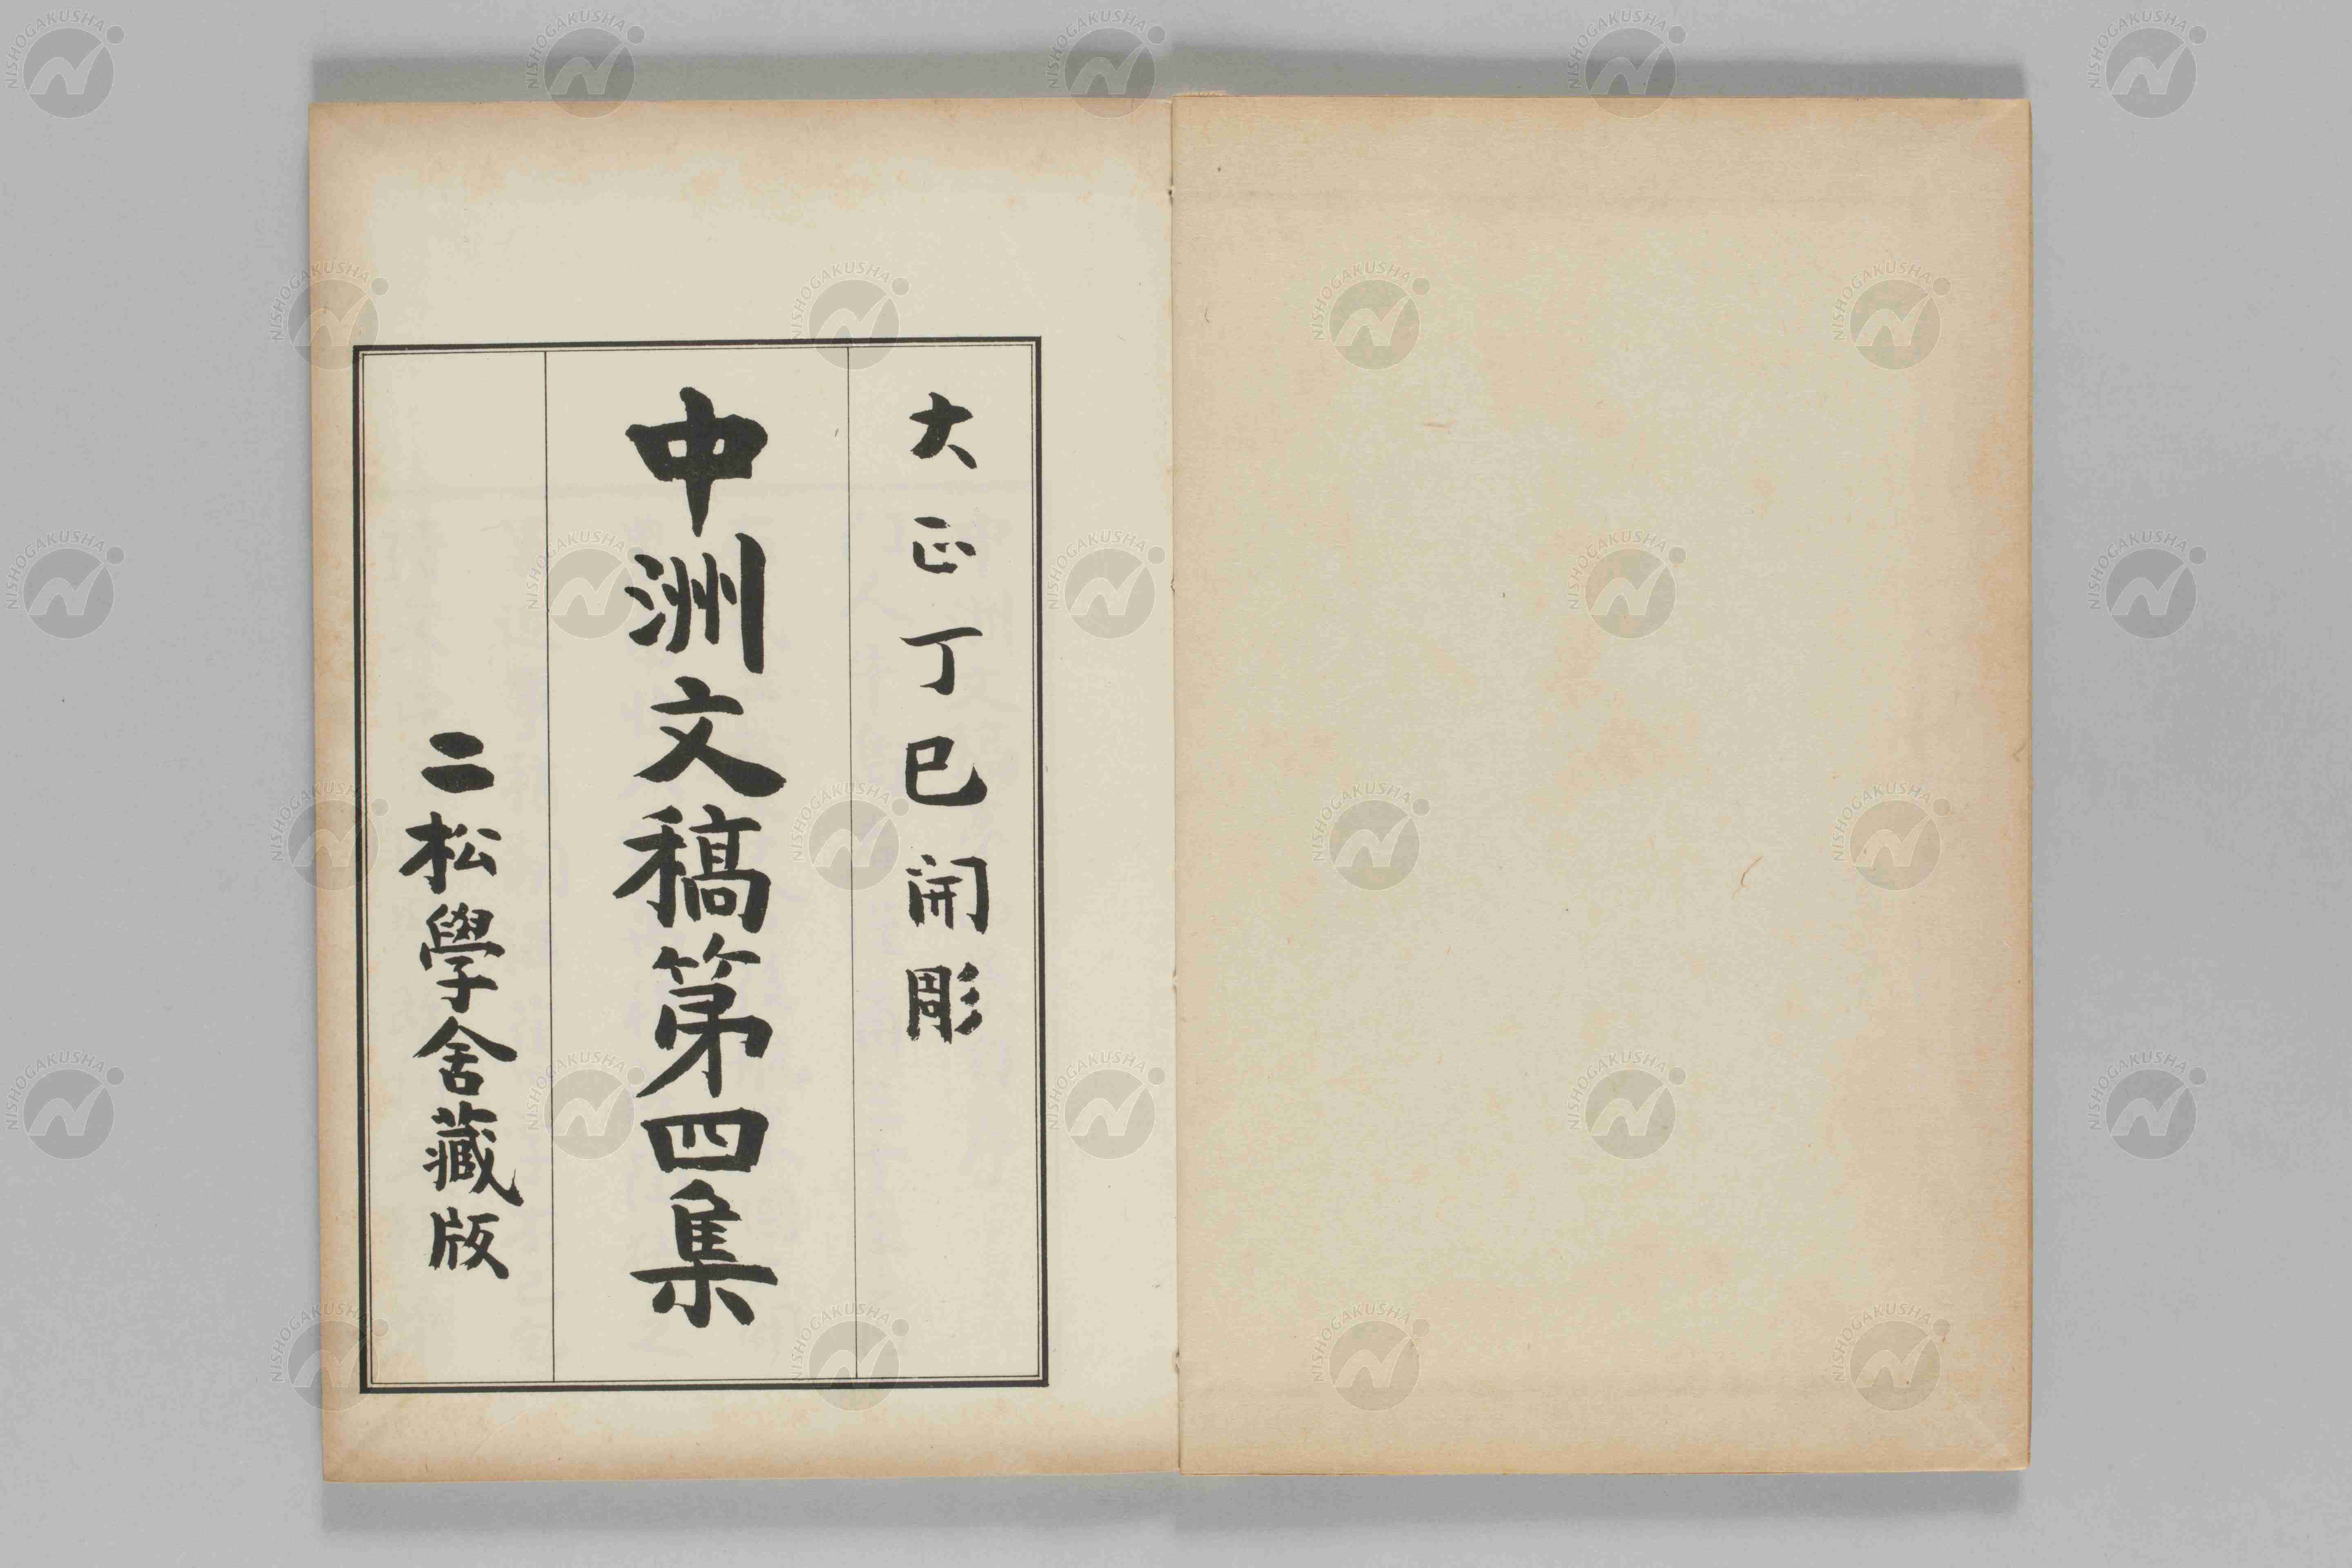 大正丁巳開彫
中洲文稿第四集
二松學舍藏版
NISHOGAKUSHA